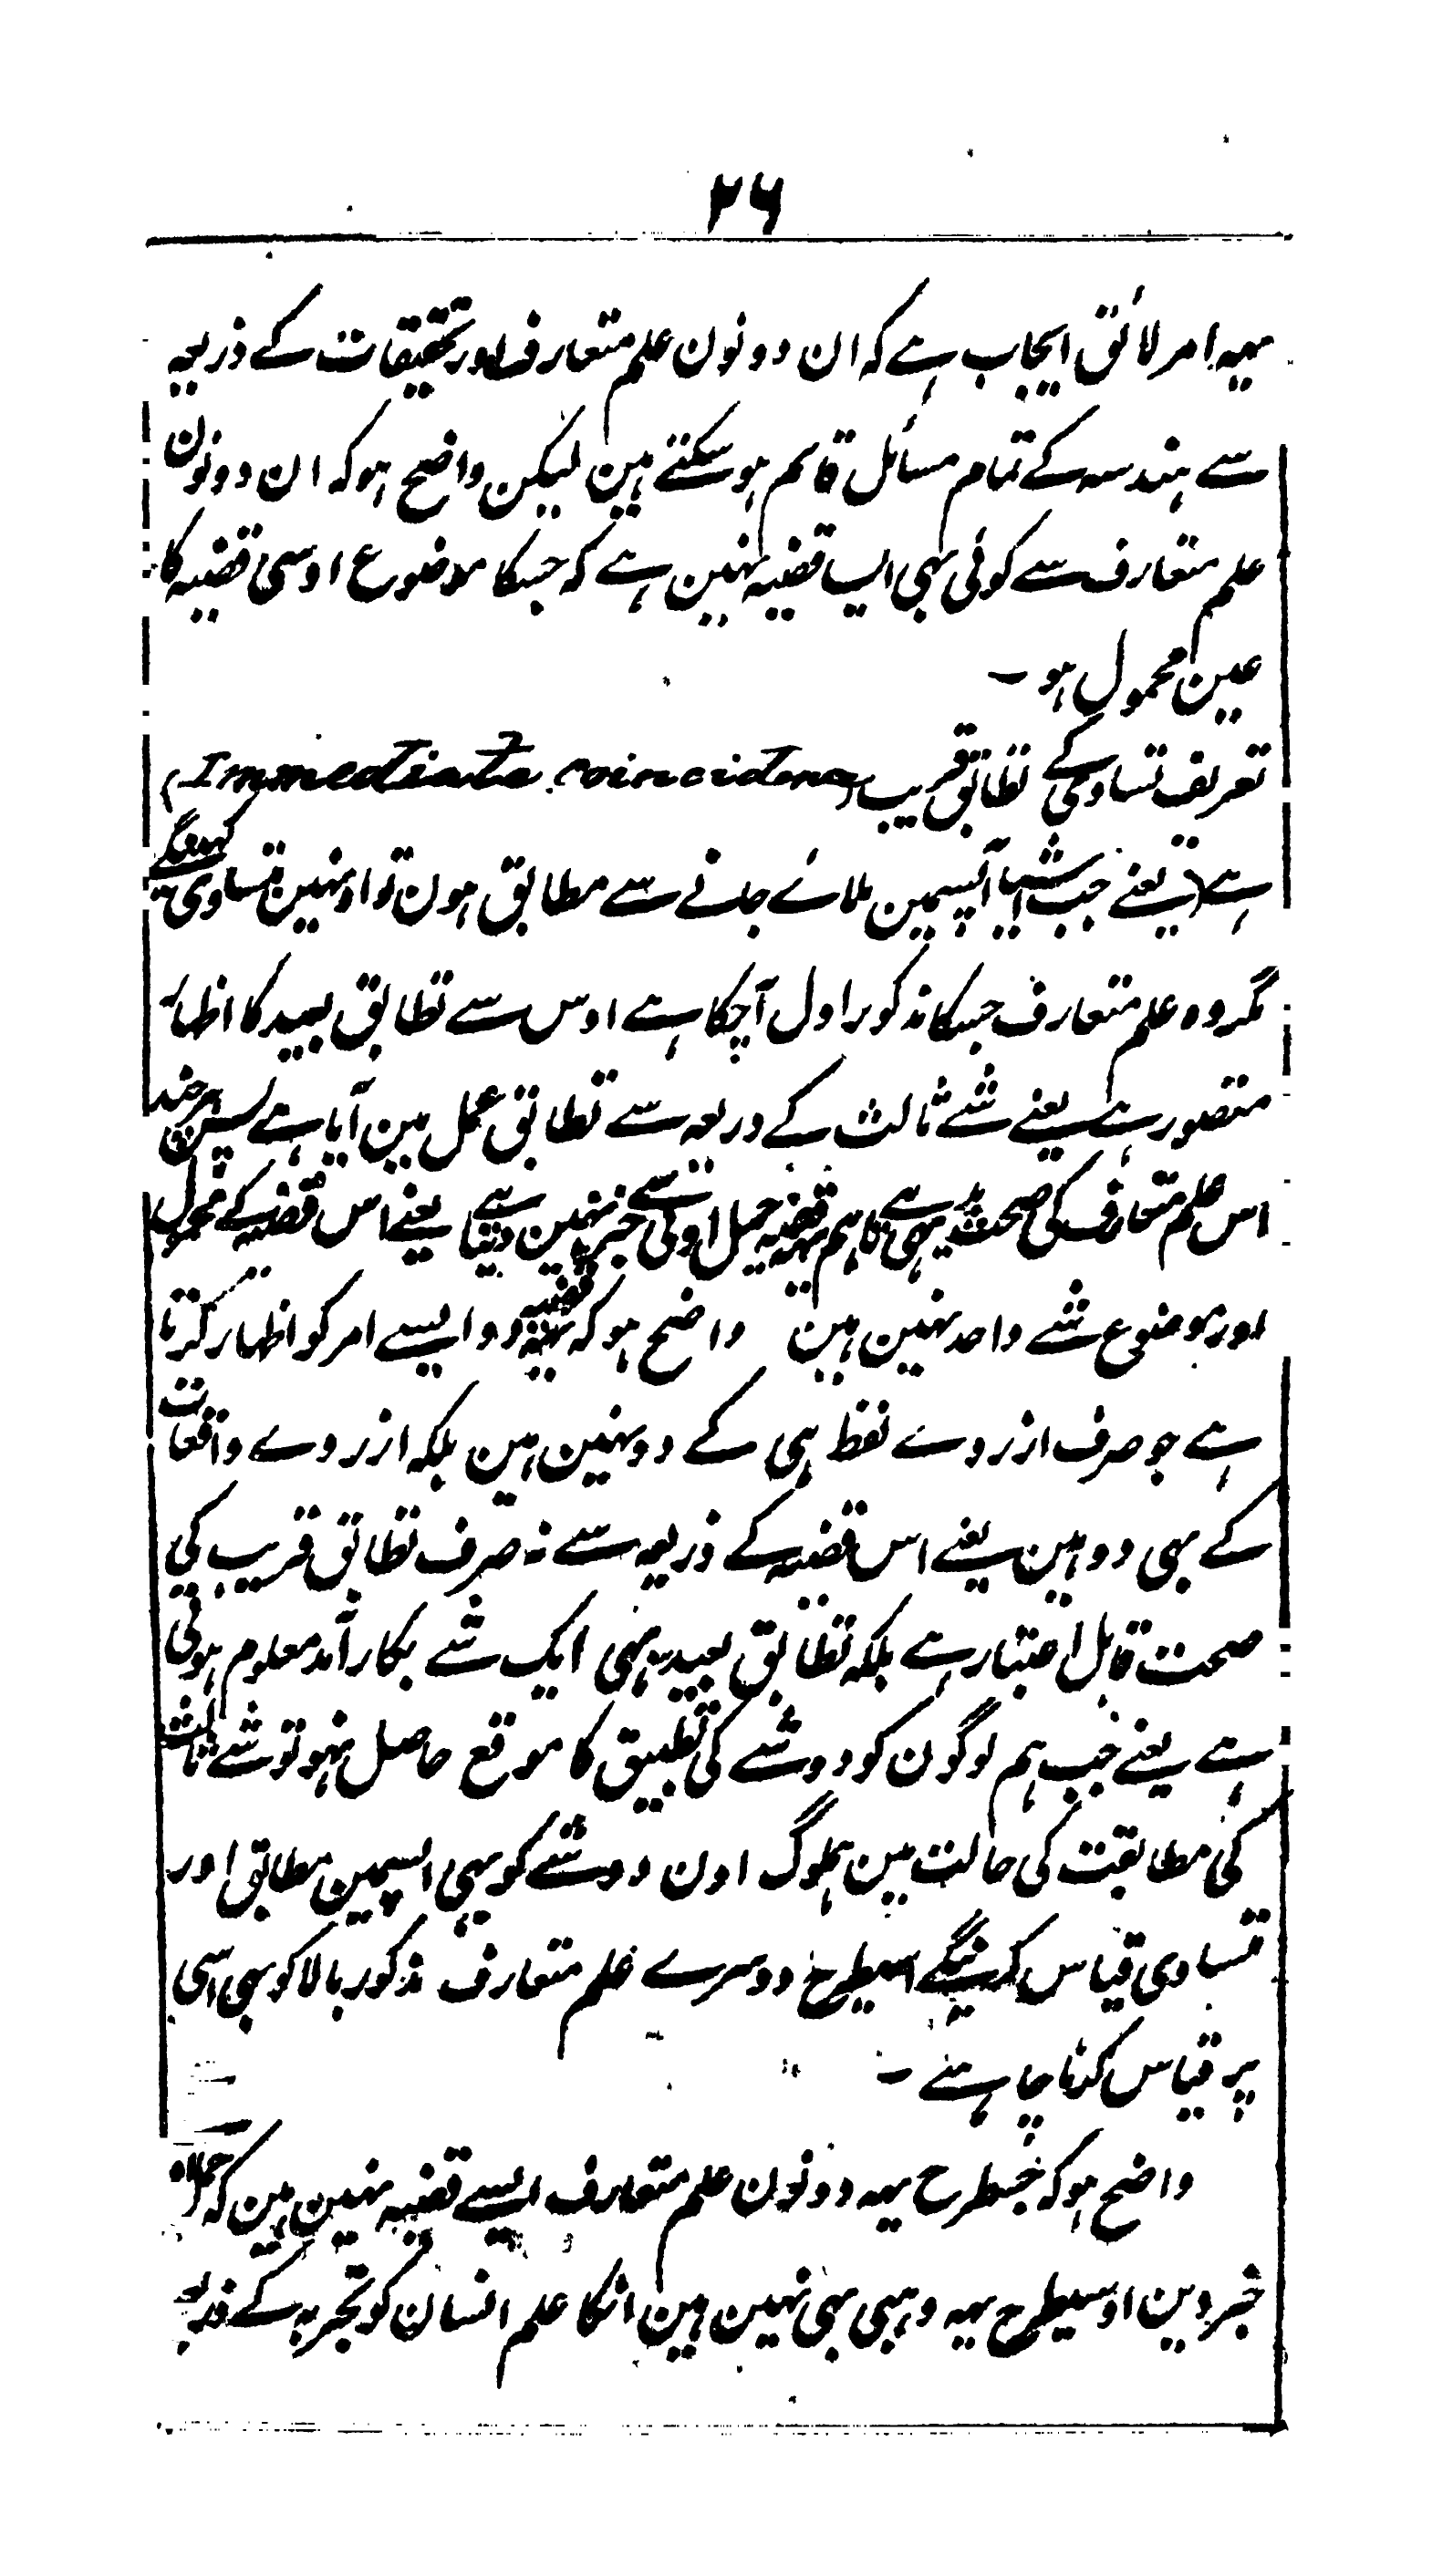 ۲۶
یہہ امر لائق ایجاب ہے کہ ان دونون علم متعارف اور تحقیقات کے ذریعہ
سے ہندسہ کے تمام مسائل قائم ہو سکتے ہین لیکن واضح ہو کہ ان دونون
علم متعارف سے کوئی بہی ایسا قضیہ نہین ہے کہ جسکا موضوع اوسی قضیہ کا
عین محمول ہو ۔
تعریف تساوی کے تطابق قریب (Immediate coincidence)
ہے (یعنے جب اشیا آپسمین ملائے جانے سے مطابق ہون تو اونہین متساوی کہینگے
مگر وہ علم متعارف جسکا مذکور اول آچکا ہے اوس سے تطابق بعید کا اظہار
متصور ہے یعنے شے ثالث کے ذریعہ سے تطابق عمل مین آیا ہے پس ہر چند
اس علم متعارف کی صحت بدیہی ہے تاہم یہہ قضیہ حمل اولی سے خبر نہین دیتا ہے یعنے اس قضیہ کے محمول
اور موضوع شے واحد نہین ہین واضح ہو کہ یہہ قضیہ دو ایسے امر کو اظہار کرتا
ہے جو صرف از روے لفظ ہی کے دو نہین ہین بلکہ از روے واقعات
کے بہی دو ہین یعنے اس قضیہ کے ذریعہ سے نہ صرف تطابق قریب کی
صحت قابل اعتبار ہے بلکہ تطابق بعید بہی ایک شے بکار آمد معلوم ہوتی
ہے یعنے جب ہم لوگون کو دو شے کی تطبیق کا موقع حاصل نہو تو شے ثالث
کی مطابقت کی حالت مین ہملوگ اون دو شے کو بہی آپسمین مطابق اور
متساوی قیاس کرینگے اسیطرح دوسرے علم متعارف مذکور بالا کو بہی اسی
پر قیاس کرنا چاہئے ۔
واضح ہو کہ جسطرح یہہ دونون علم متعارف ایسے قضیہ نہین ہین کہ حملاً
خبر دین اوسیطرح یہہ وہبی بہی نہین ہین انکا علم انسان کو تجربہ کے ذریعہ